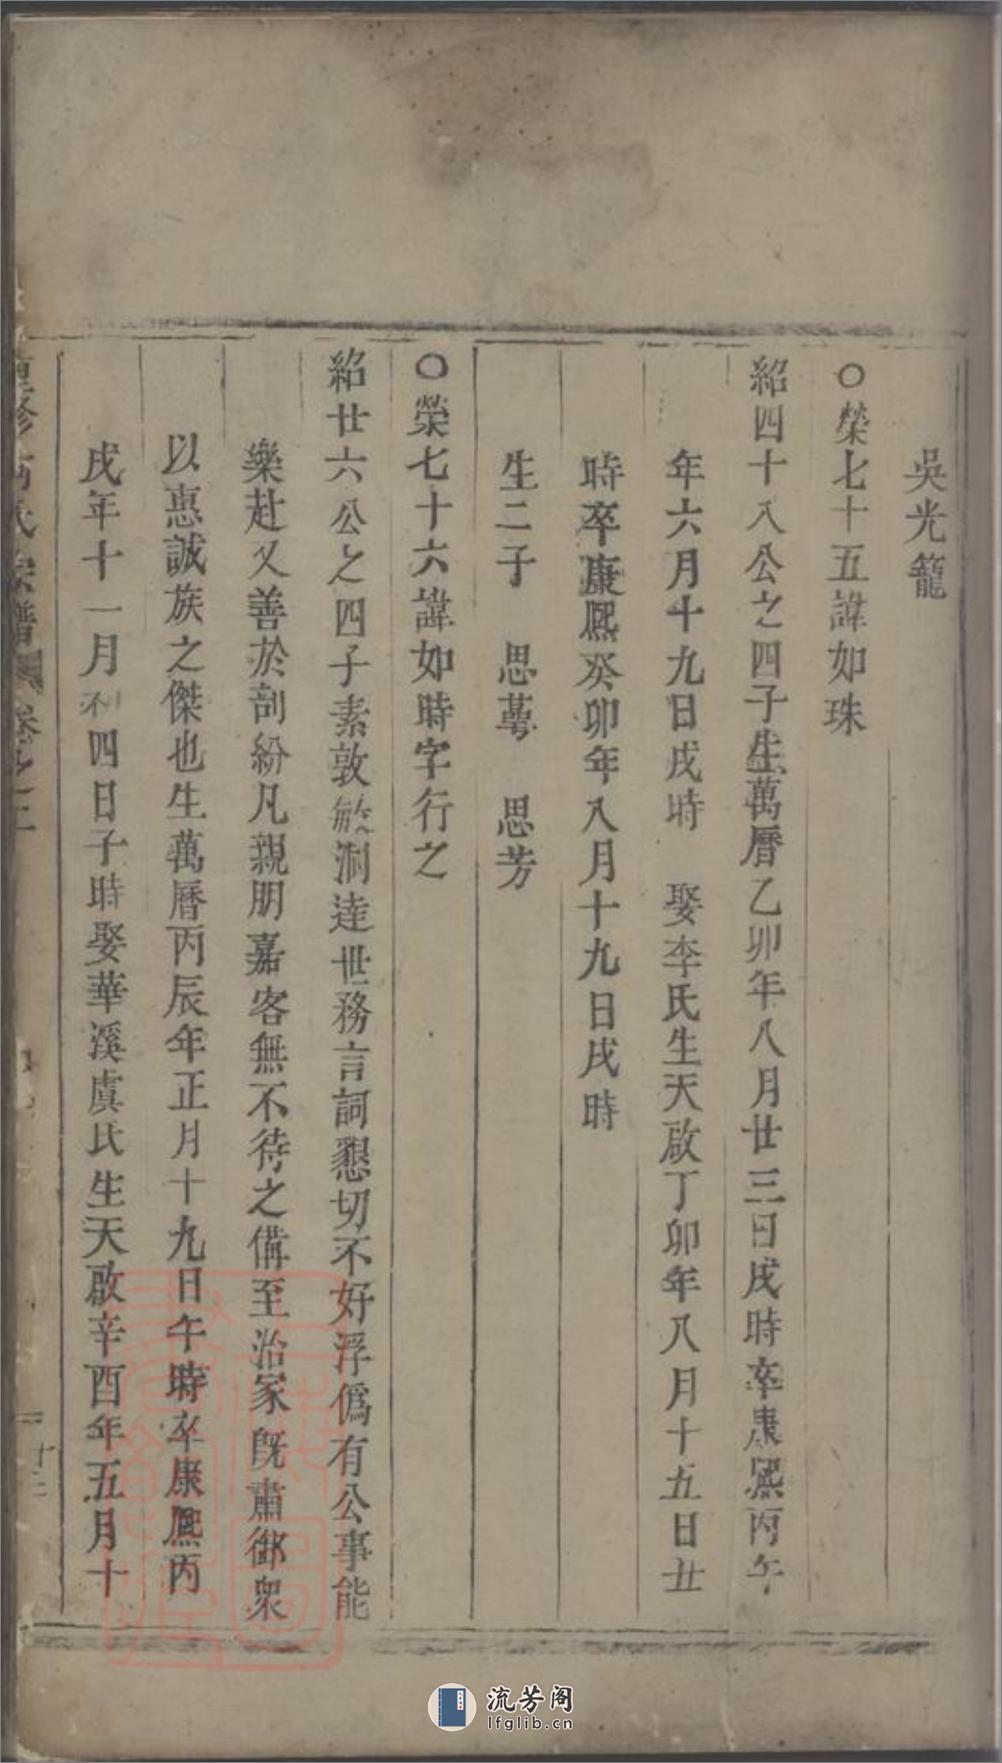 吳光籠
○榮七十五諱如珠
紹四十八公之四子生萬曆乙卯年八月廿三日戌時卒康熙丙午
年六月十九日戌時　娶李氏生天啟丁卯年八月十五日丑
時卒康熙癸卯年八月十九日戌時
生二子　思蕚　思芳
○榮七十六諱如時字行之
紹廿六公之四子素敦敏洞達世務言詞懇切不好浮僞有公事能
樂赴又善於剖紛凡親朋嘉客無不待之備至治家旣肅御衆
以惠誠族之傑也生萬曆丙辰年正月十九日午時卒康熙丙
戌年十一月初四日子時娶華溪虞氏生天啟辛酉年五月十
氏宗譜 卷之二
流芳阁
lfglib.cn